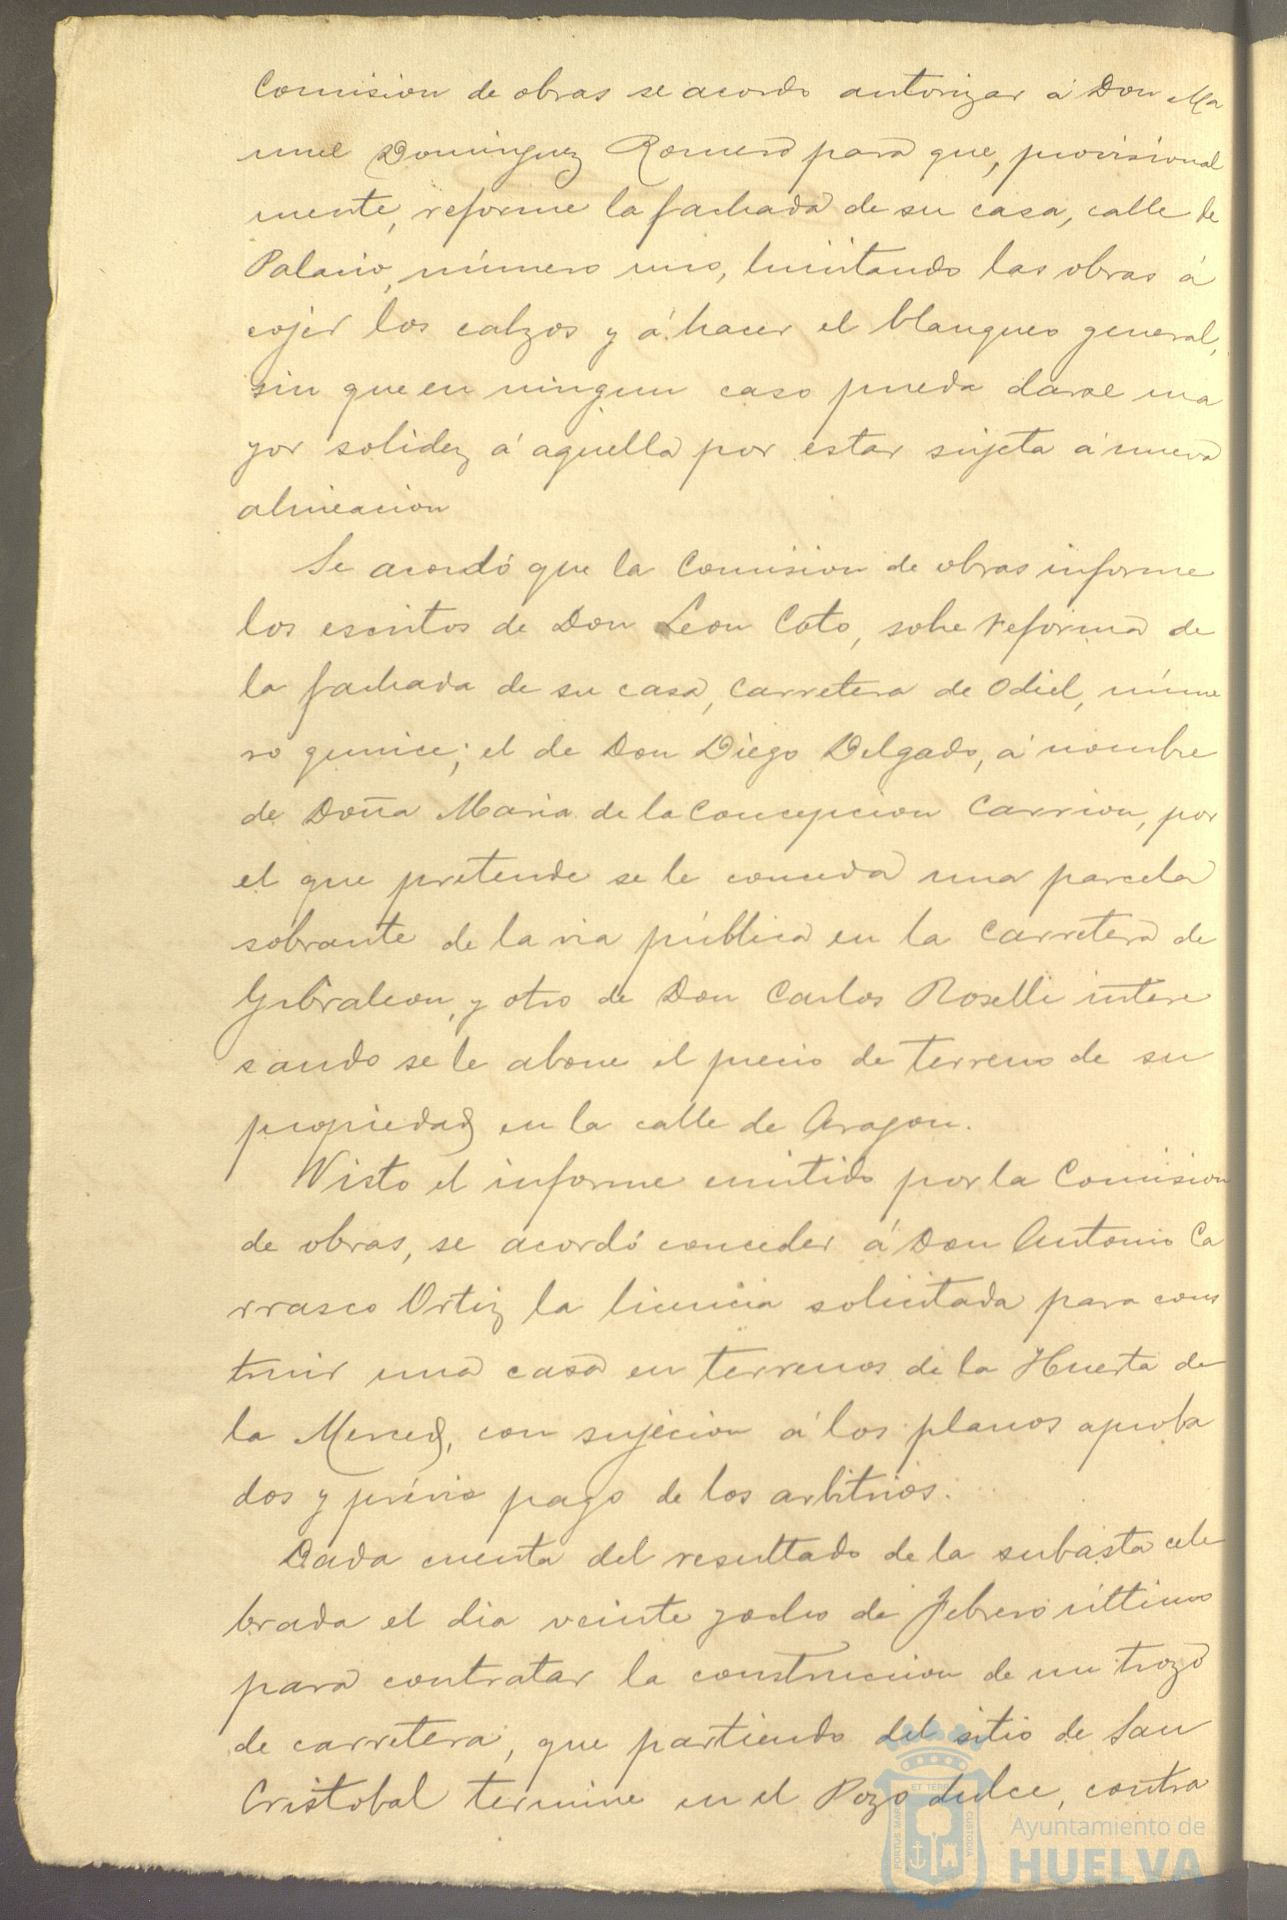 Comision de obras se acordo autorizar á Don Ma
nuel Dominguez Romero para que, provisional
mente, reforme la fachada de su casa, calle de
Palacio, número uno, limitando las obras á
cojer los calzos y á hacer el blanqueo general,
sin que en ningun caso pueda darse ma
yor solidez á aquella por estar sujeta á nueva
alineacion
Se acordó que la Comision de obras informe
los escritos de Don Leon Coto, sobre reforma de
la fachada de su casa, Carretera de Odiel, núme
ro quince; el de Don Diego Delgado, á nombre
de Doña Maria de la Concepcion Carrion, por
el que pretende se le conceda una parcela
sobrante de la via pública en la Carretera de
Gibraleon, y otro de Don Carlos Roselli intere
sando se le abone el precio de terreno de su
propiedad en la calle de Aragon.
Visto el informe emitido por la Comision
de obras, se acordó conceder á Don Antonio Ca
rrasco Ortiz la licencia solicitada para cons
truir una casa en terrenos de la Huerta de
la Merced, con sujecion á los planos aproba
dos y prévio pago de los arbitrios.
Dada cuenta del resultado de la subasta cele
brada el dia veinte y ocho de Febrero último
para contratar la construccion de un trozo
de carretera, que partiendo del sitio de San
Cristobal termine en el Pozo dulce, contra
PORTUS MARIS
ET TERRÆ
CUSTODIA
Ayuntamiento de
HUELVA